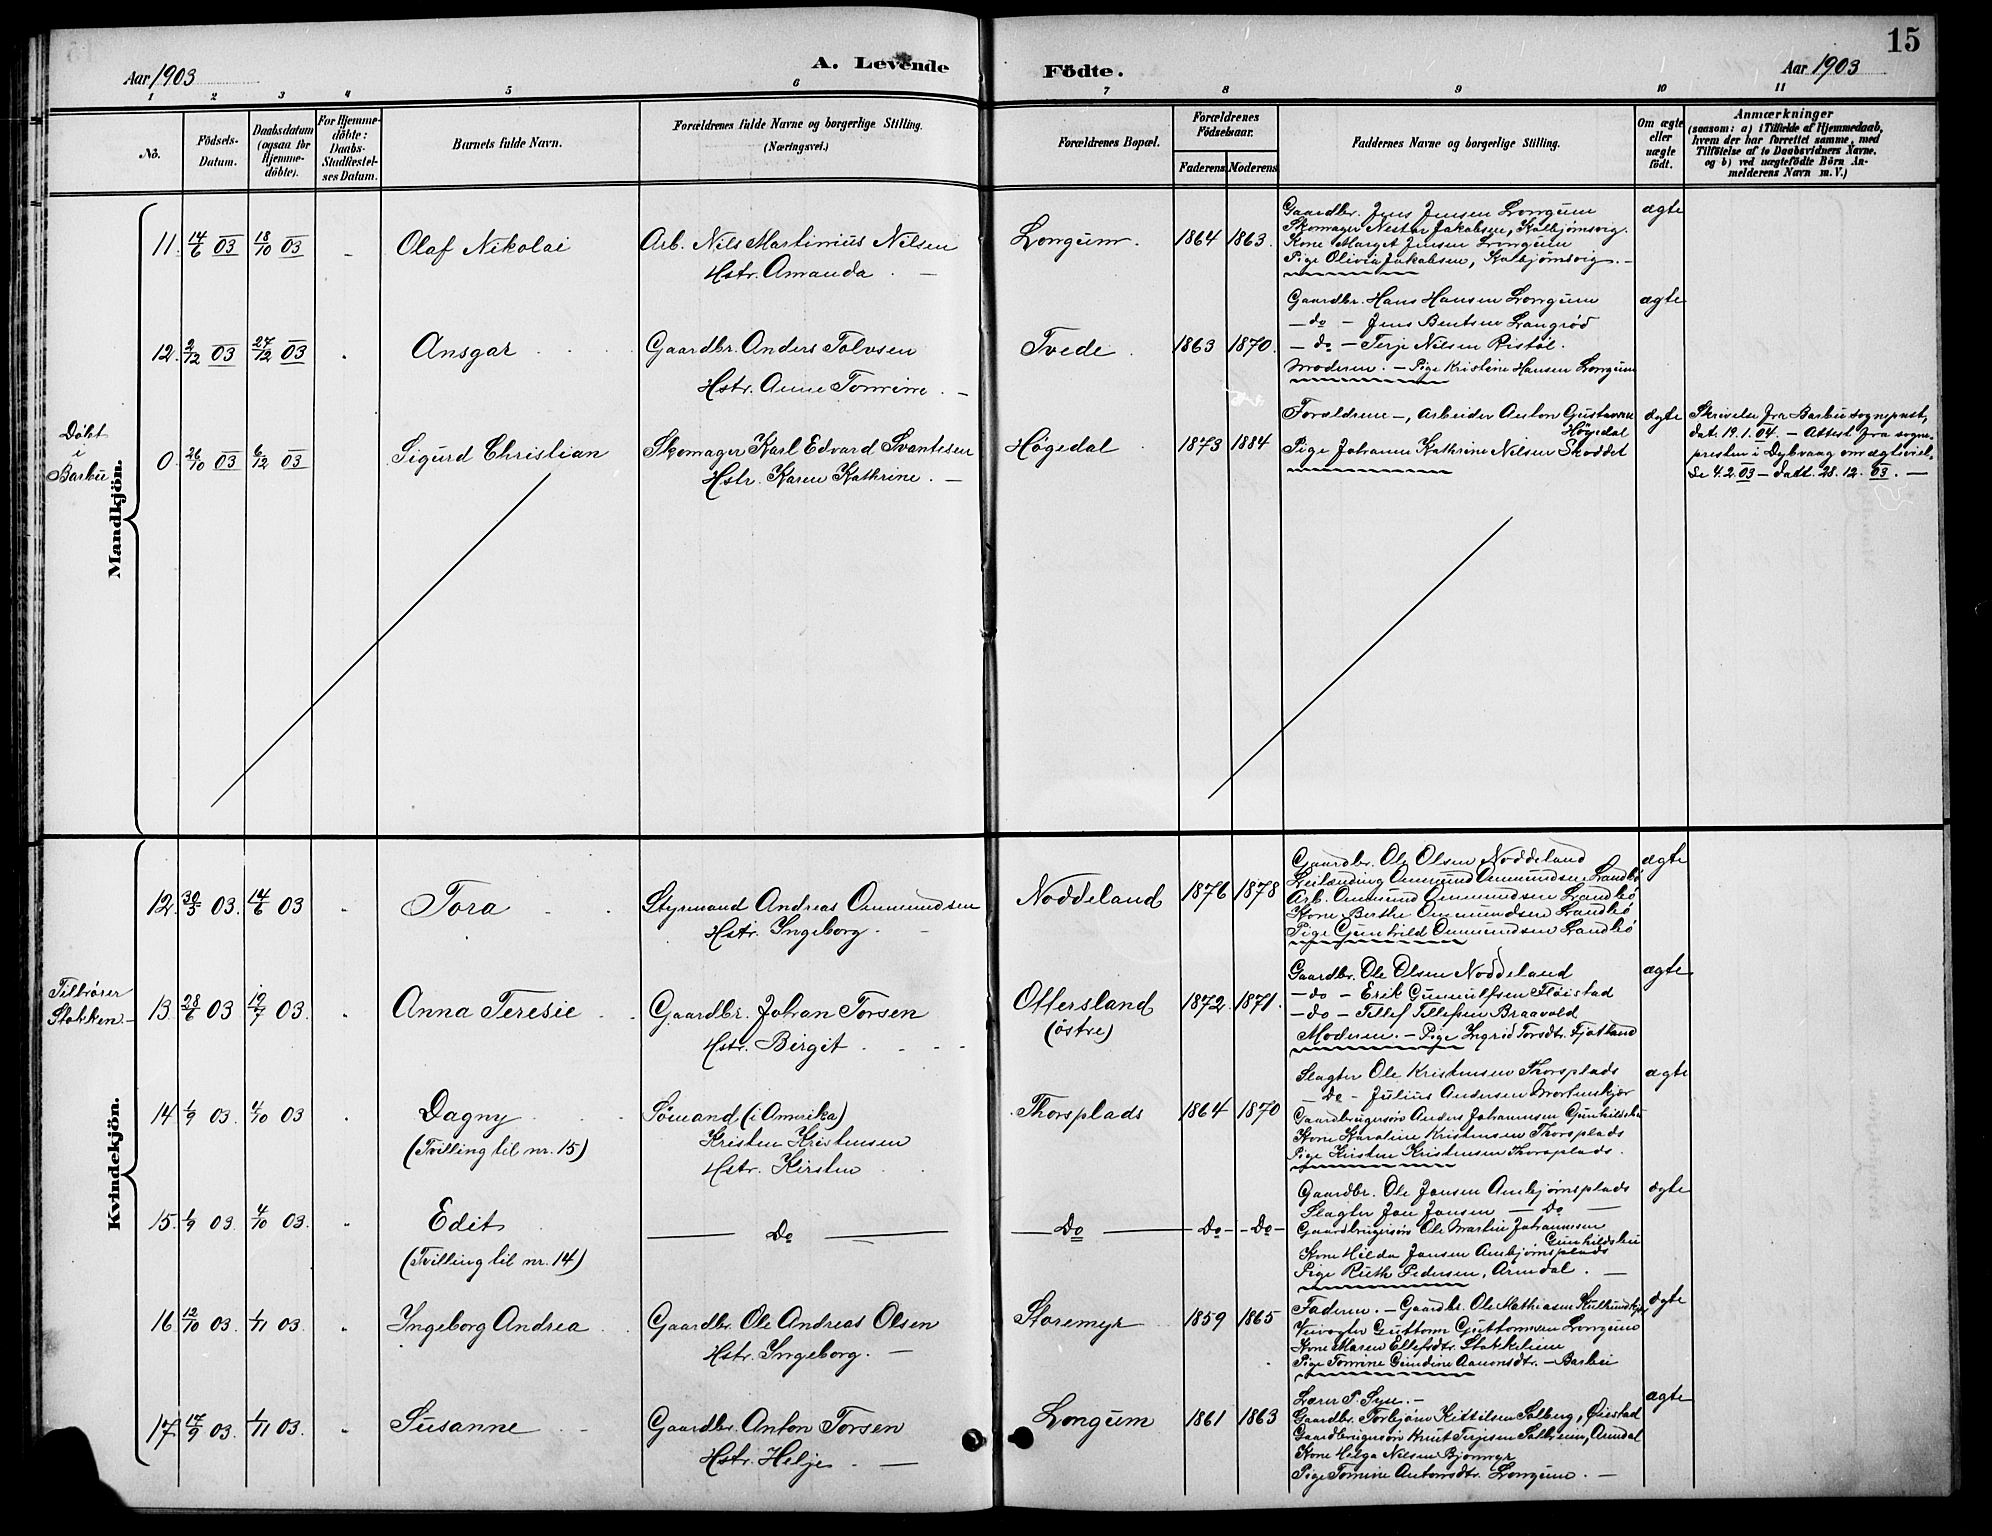 15
Aar 1903
A. Levende
Födte.
Aar 1903
1 2 3 4 5 6 7 8 9 10 11
No.
Födsels-
Datum.
Daabsdatum
(ogsaa for
Hjemme-
döbte).
For Hjemme-
döbte:
Daabs-
Stadfæstel-
ses Datum.
Barnets fulde Navn.
Forældrenes fulde Navne og borgerlige Stilling.
(Næringsvei.)
Forældrenes Bopæl.
Forældrenes
Födselsaar.
Faderens Moderens
Faddernes Navne og borgerlige Stilling.
Om ægte
eller
uægte
födt.
Anmærkninger
(saasom: a) i Tilfælde af Hjemmedaab,
hvem der har forrettet samme, med
Tilföielse af to Daabsvidners Navne.
og b) ved uægtefödte Börn An-
melderens Navn m. V.)
Mandkjön.
11. 14/6 03 18/10 03 Olaf Nikolai
Arb. Nils Martinius Nilsen
Hstr. Amanda. —
Longum. 1864 1863.
Gaardbr. Jens Jensen Longum
Skomager Nestor Jakobsen, Kalbjørnsvig.
Kone Marget Jensen Longum
Pige Olivia Jakobsen, Kalbjørnsvig. —
ægte
12. 2/12 03 27/12 03 Ansgar
Gaardbr. Anders Tolvsen
Hstr. Anne Tomine. —
Tvede. 1863 1870.
Gaardbr. Hans Hansen Longum
— do — Jens Bentsen Langrød
— do — Terje Nilsen Ristøl.
Moderen. — Pige Kristine Hansen Longum
ægte
Døbt
i
Barbu.
0. 26/10 03 6/12 03 Sigurd Christian
Skomager Karl Edvard Svantesen
Hstr. Karen Kathrine. —
Høgedal 1873 1884
Forældrene —, Arbeider Anton Gustavsen
Høgedal
Pige Johanne Kathrine Nilsen Skoddet
ægte
Skrivelse fra Barbu sogneprest,
dat. 19.1.04. — Attest fra sogne-
presten i Dybvaag om ægteviel-
se 4.2.03 — datt. 28.12.03. —
Kvindekjön.
12. 30/3 03. 14/6 03 Tora
Styrmand Andreas Ommundsen
Hstr. Ingeborg. —
Noddeland 1876 1878
Gaardbr. Ole Olsen Noddeland
Leilænding Ommund Ommundsen Landbø
Arb. Ommund Ommundsen Landbø
Kone Berthe Ommundsen Landbø
Pige Gunhild Ommundsen Landbø
ægte
Tilhører
Stokken —
13. 28/6 03 19/7 03. Anna Teresie
Gaardbr. Johan Torsen
Hstr. Birgit.
Ottersland
(østre)
1872. 1871.
Gaardbr. Ole Olsen Noddeland
— do — Erik Gunnulfsen Fløistad
— do — Tellef Tellefsen Braavold
Moderen. — Pige Ingrid Torsdtr. Fjotland
ægte
14. 1/9 03. 4/10 03 Dagny
(Tvilling til nr. 15)
Sømand (i Amerika)
Kristen Kristensen
Hstr. Kirsten
Thorsplads 1864 1870
Slagter Ole Kristensen Thorsplads
— Do — Julius Andersen Mortenskjær
Gaardbrugersøn Anders Johannesen Gunhildsbu
Kone Karoline Kristensen Thorsplads
Pige Kirsten Kristensen Thorsplads.
ægte
15. 1/9 03. 4/10 03. Edit
(Tvilling til nr. 14)
— Do —
— Do — — Do — — Do —
Gaardbr. Ole Jensen Ambjørnsplads
Slagter Jon Jensen — Do —
Gaardbrugersøn Ole Martin Johannesen
Gunhildsbu
Kone Hilda Jensen Ambjørnsplads
Pige Ruth Pedersen, Arendal. —
ægte
16. 12/10 03. 1/11 03. Ingeborg Andrea
Gaardbr. Ole Andreas Olsen
Hstr. Ingeborg. —
Storemyr 1859 1865
Faderen. — Gaardbr. Ole Mathiasen
Veivogter Guttorm Guttormsen Longum
Kone Maren Ellefsdtr. Stokkelien
Pige Tomine Gundine Aanonsdtr. — Barbu
ægte
17. 17/9 03. 1/11 03. Susanne
Gaardbr. Anton Torsen
Hstr. Helje. —
Longum 1861 1863
Lærer P. Syse. —
Gaardbr. Torbjørn Kittilsen Solberg, Øiestad
Gaardbrugersøn Knut Terjesen Solbrein, Arendal
Kone Helga Nilsen Bjønmyr
Pige Tomine Antonsdtr. Longum. —
ægte